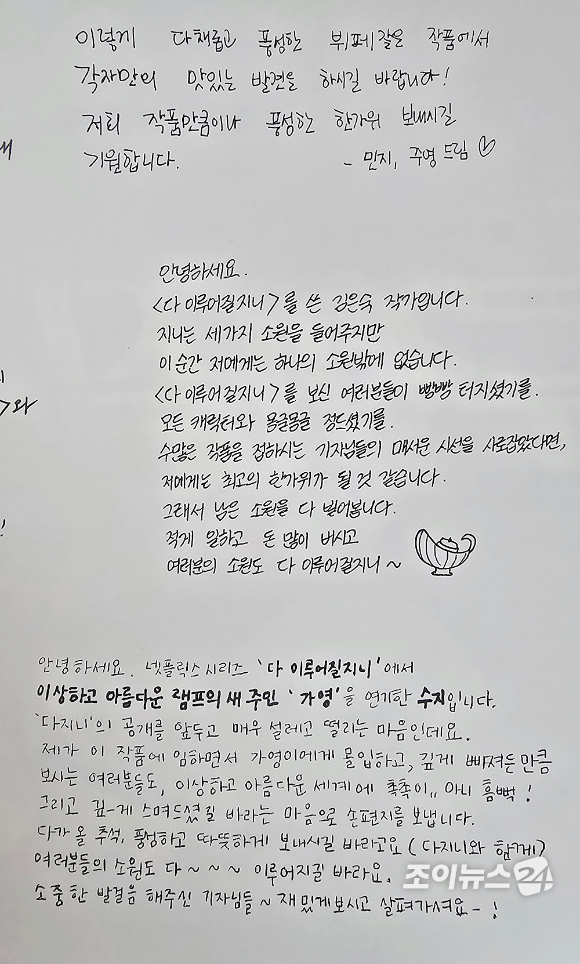 이렇게 다채롭고 풍성한 뷔페같은 작품에서
각자만의 맛있는 발견을 하시길 바랍니다!
저희 작품만큼이나 풍성한 한가위 보내시길
기원합니다. - 민지, 주영 드림
안녕하세요.
<다 이루어질지니>를 쓴 김은숙 작가입니다.
지니는 세가지 소원을 들어주지만
이 순간 저에게는 하나의 소원밖에 없습니다.
<다 이루어질지니>를 보신 여러분들이 빵빵 터지셨기를.
모든 캐릭터와 몽글몽글 정드셨기를.
수많은 작품을 접하시는 기자님들의 매서운 시선을 사로잡았다면,
저에게는 최고의 한가위가 될 것 같습니다.
그래서 남은 소원을 다 빌어봅니다.
적게 일하고 돈 많이 버시고
여러분의 소원도 다 이루어질지니~
안녕하세요. 넷플릭스 시리즈 '다 이루어질지니'에서
이상하고 아름다운 램프의 새 주인 '가영'을 연기한 수지입니다.
'다지니'의 공개를 앞두고 매우 설레고 떨리는 마음인데요.
제가 이 작품에 임하면서 가영이에게 몰입하고, 깊게 빠져든 만큼
보시는 여러분들도, 이상하고 아름다운 세계에 촉촉이,, 아니 흠뻑!
그리고 깊-게 스며드셨길 바라는 마음으로 손편지를 보냅니다.
다가올 추석, 풍성하고 따뜻하게 보내시길 바라고요 (다지니와 함께)
여러분들의 소원도 다~~~ 이루어지길 바라요.
소중한 발걸음 해주신 기자님들~ 재밌게보시고 살펴가셔요-!
조이뉴스24